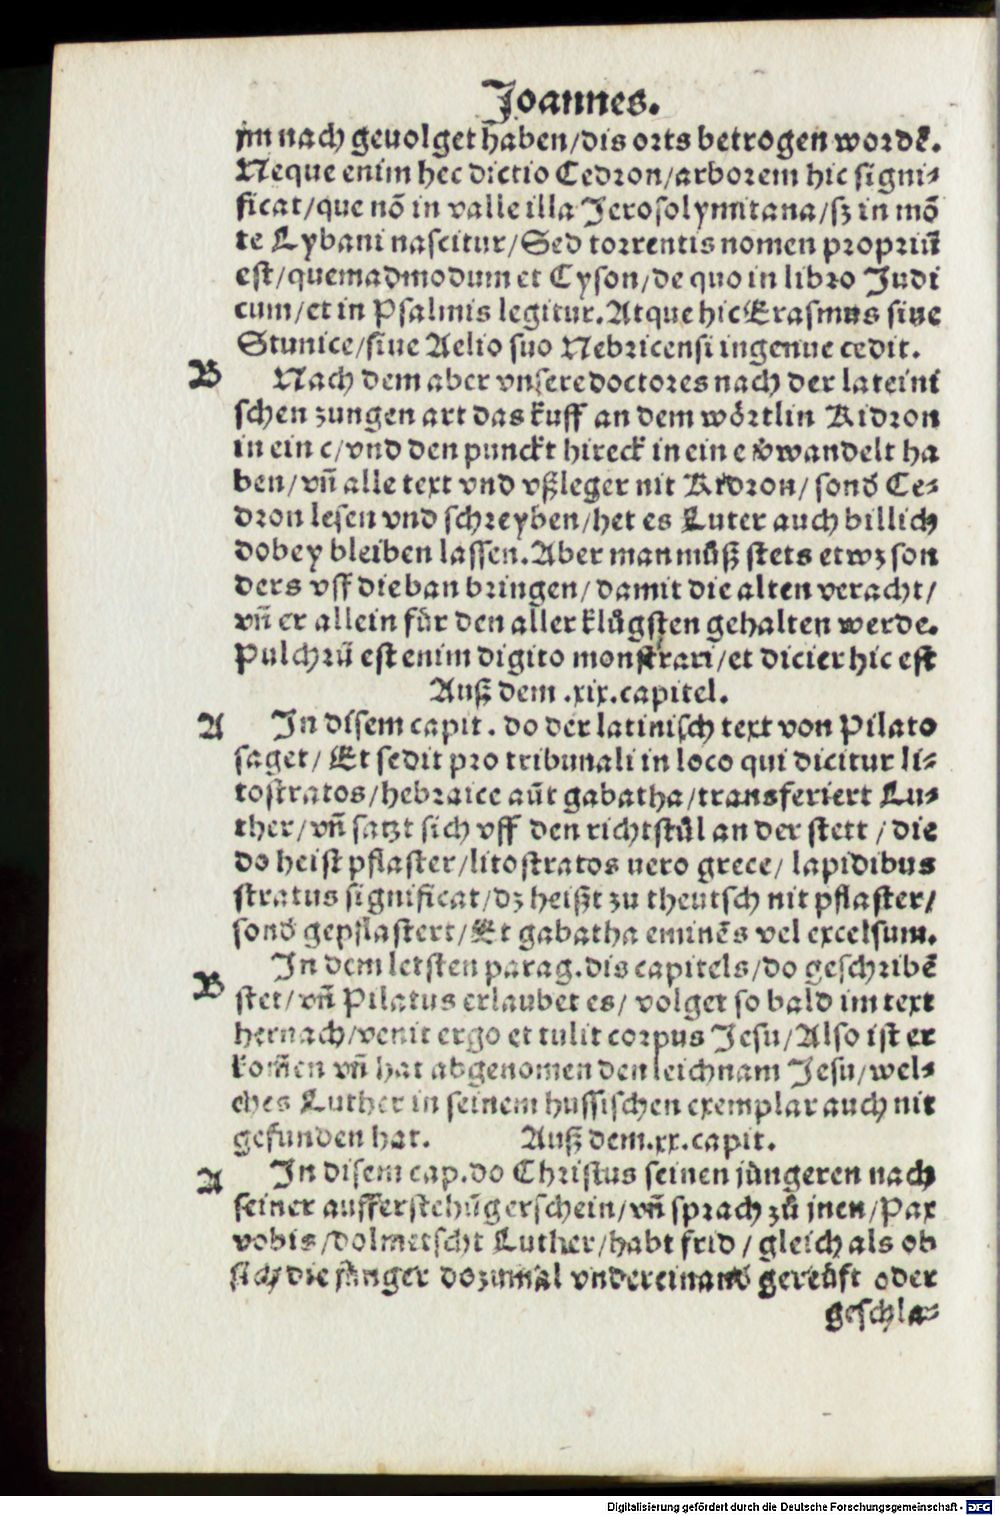 Joannes.
jm nach geuolget haben/dis orts betrogen wordē.
Neque enim hec dictio Cedron/arborem hic signi⸗
ficat/que nō in valle illa Jerosolymitana/sꝫ in mō
te Lybani nascitur/Sed torrentis nomen propriū
est/quemadmodum et Cyson/de quo in libro Judi
cum/et in Psalmis legitur.Atque hic Erasmus siue
Stunice/siue Aelio suo Nebricensi ingenue cedit.
B Nach dem aber vnsere doctores nach der lateini
schen zungen art das kuff an dem wörtlin Kidron
in ein c/vnd den punckt hireck in ein e v̓wandelt ha
ben/vn̄ alle text vnd vßleger nit Kidron/sond̓ Ce⸗
dron lesen vnd schreyben/het es Luter auch billich
dobey bleiben lassen.Aber man můß stets etwz son
ders vff die ban bringen/damit die alten veracht/
vn̄ er allein für den aller klůgsten gehalten werde.
Pulchrū est enim digito monstrari/et dicier hic est
Auß dem .xix.capitel.
A In disem capit. do der latinisch text von Pilato
saget/ Et sedit pro tribunali in loco qui dicitur li⸗
tostratos/hebraice aūt gabatha/transferiert Lu⸗
ther/vn̄ satzt sich vff den richtstůl an der stett/die
do heist pflaster/litostratos uero grece/ lapidibus
stratus significat/dz heißt zu theutsch nit pflaster/
sond̓ gepflastert/Et gabatha eminēs vel excelsum.
B In dem letsten parag.dis capitels/do geschribē
stet/vn̄ Pilatus erlaubet es/ volget so bald im text
hernach/venit ergo et tulit corpus Jesu/Also ist er
kom̄en vn̄ hat abgenomen den leichnam Jesu/wel⸗
ches Luther in seinem hussischen exemplar auch nit
gefunden hat. Auß dem.xx.capit.
A In disem cap.do Christus seinen jüngeren nach
seiner aufferstehūg erschein/vn̄ sprach zů jnen/Pax
vobis/dolmetscht Luther/habt frid/gleich als ob
sich die jünger dozumal vndereinand̓ gereüft oder
geschla⸗
Digitalisierung gefördert durch die Deutsche Forschungsgemeinschaft - DFG